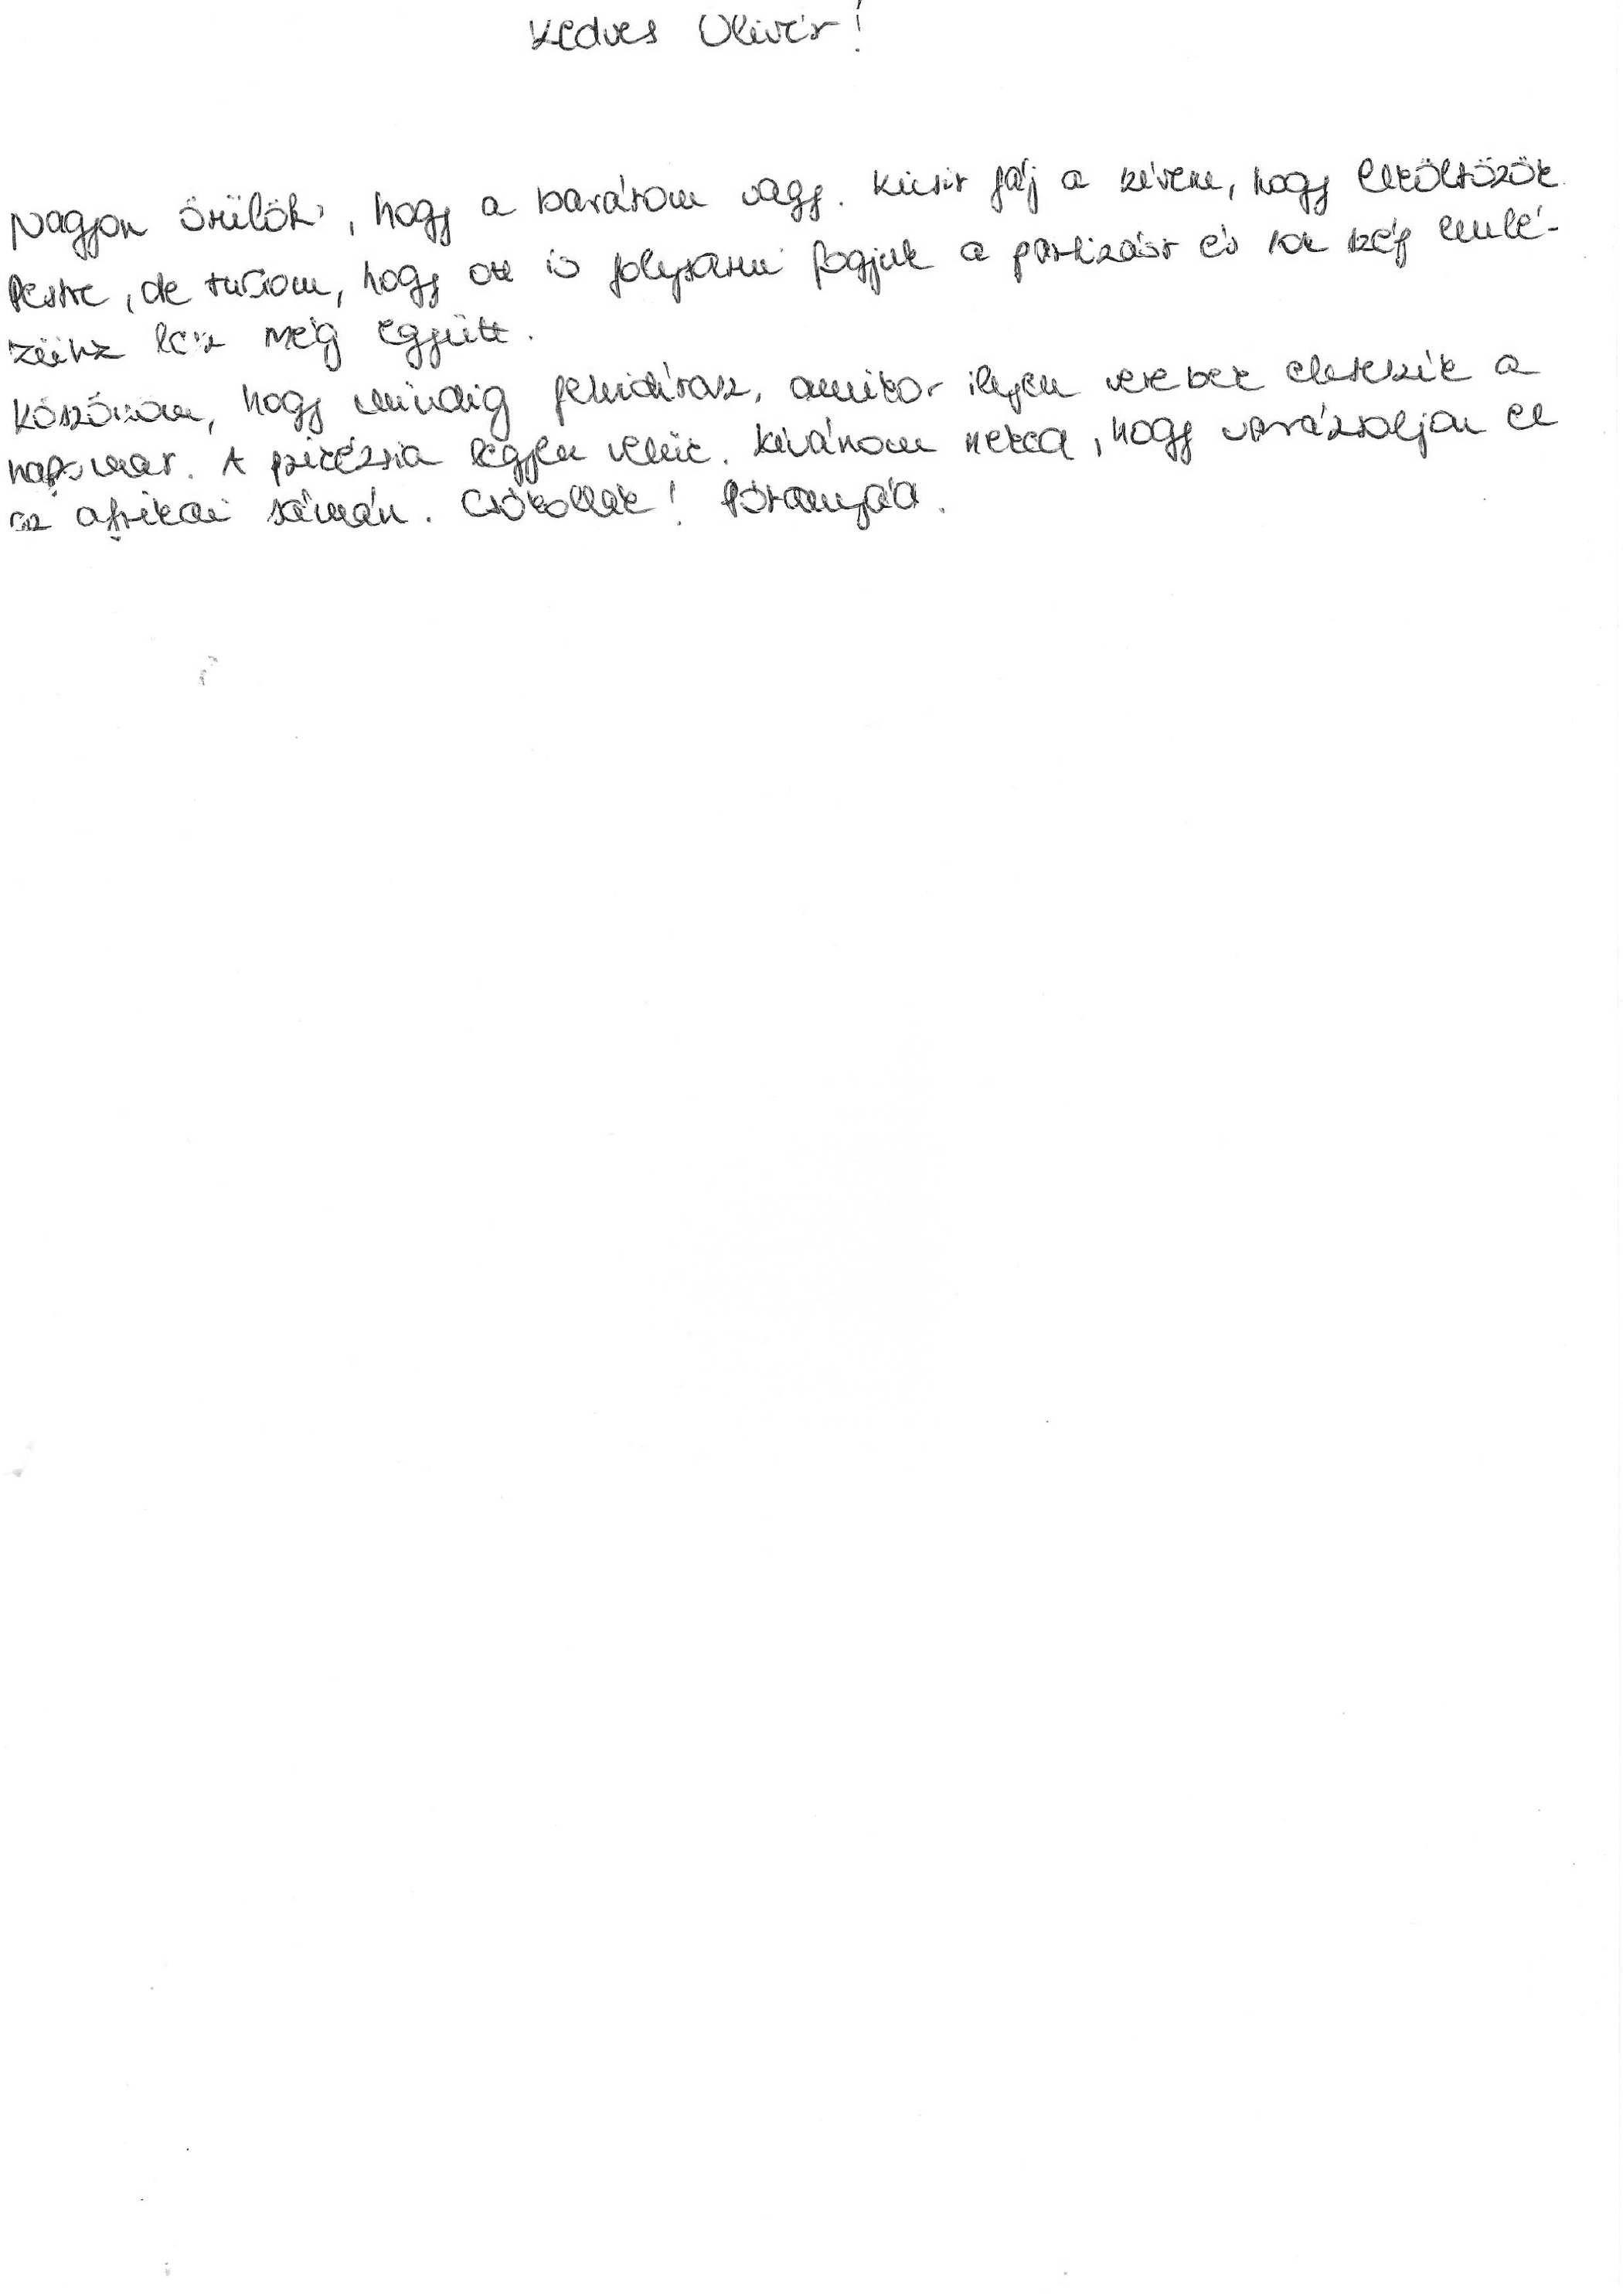 Kedves Olivér!
Nagyon örülök, hogy a barátom vagy. Kicsit fáj a szívem, hogy elköltözök
Pestre, de tudom, hogy ott is folytatni fogjuk a partizást és sok szép emlé-
zünk lesz még együtt.
Köszönöm, hogy mindig felvidítasz, amikor ilyen verebek elcseszik a
napomat. A pszitézsia legyen velük. Kívánom neked, hogy varázsoljon el
az afrikai sámán. Csókollak! Pótanyád.